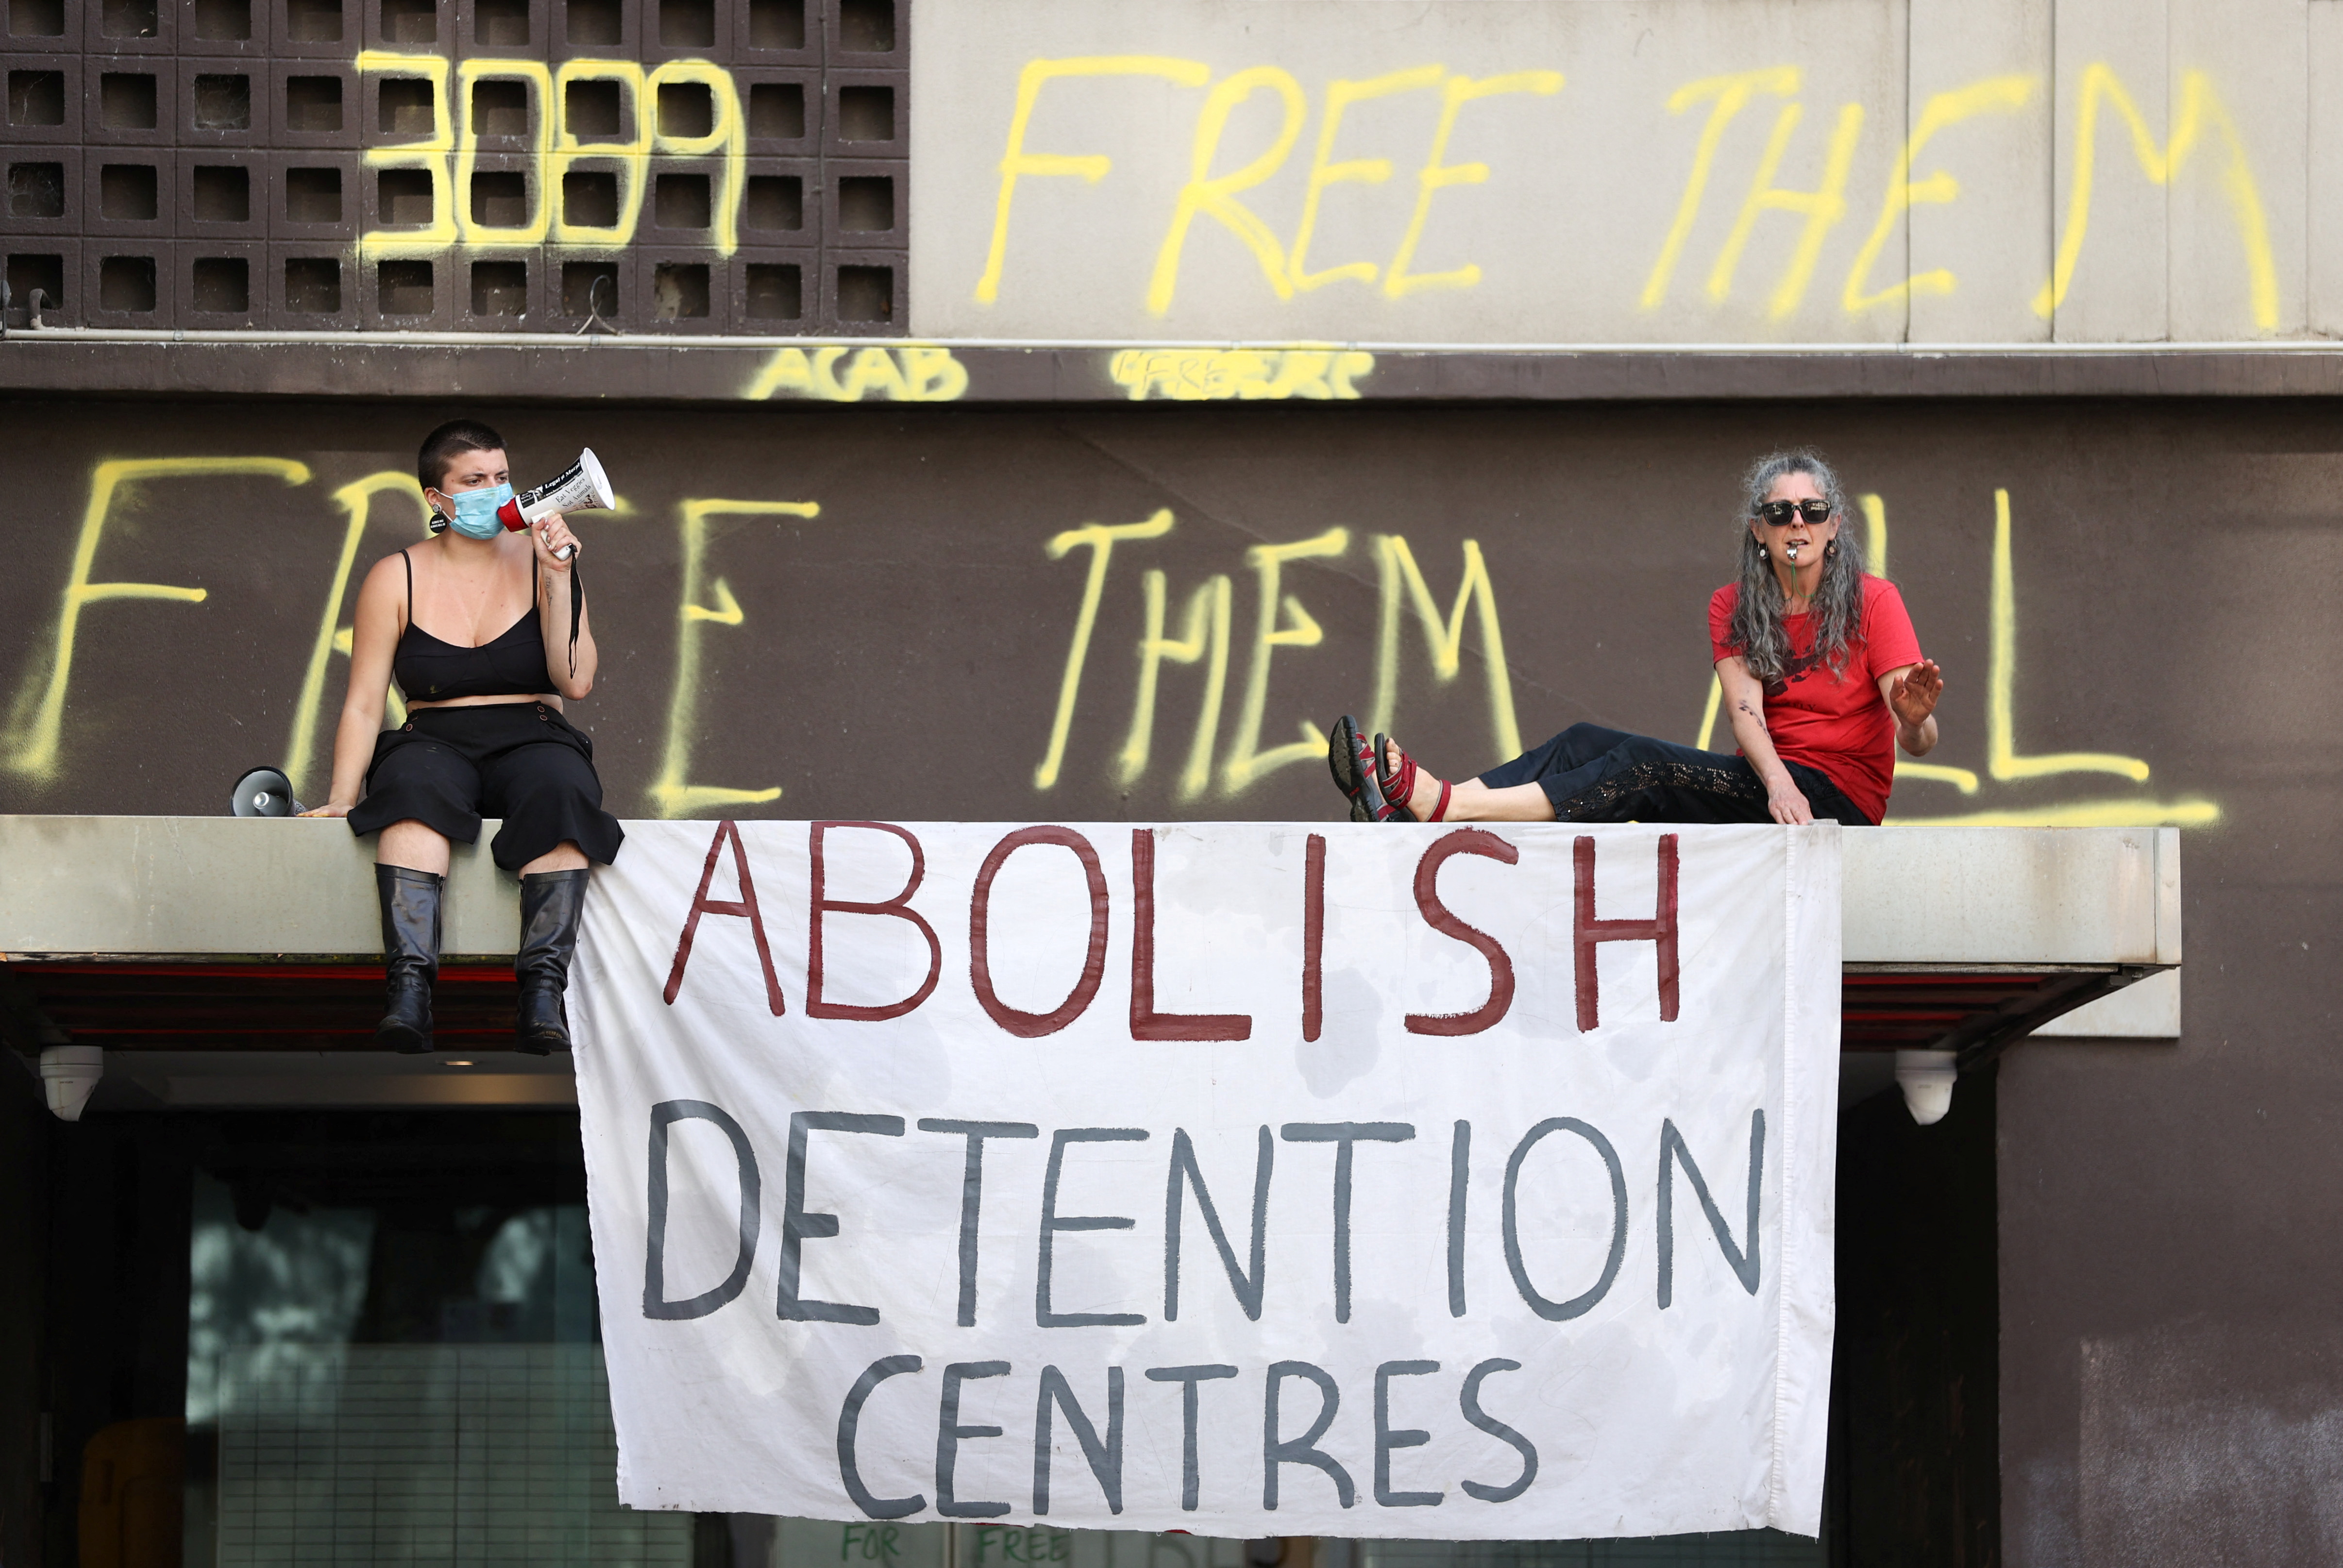 3089
FREE THEM
ACAB
FREE THEM ALL
ABOLISH
DETENTION
CENTRES
FOR FREE